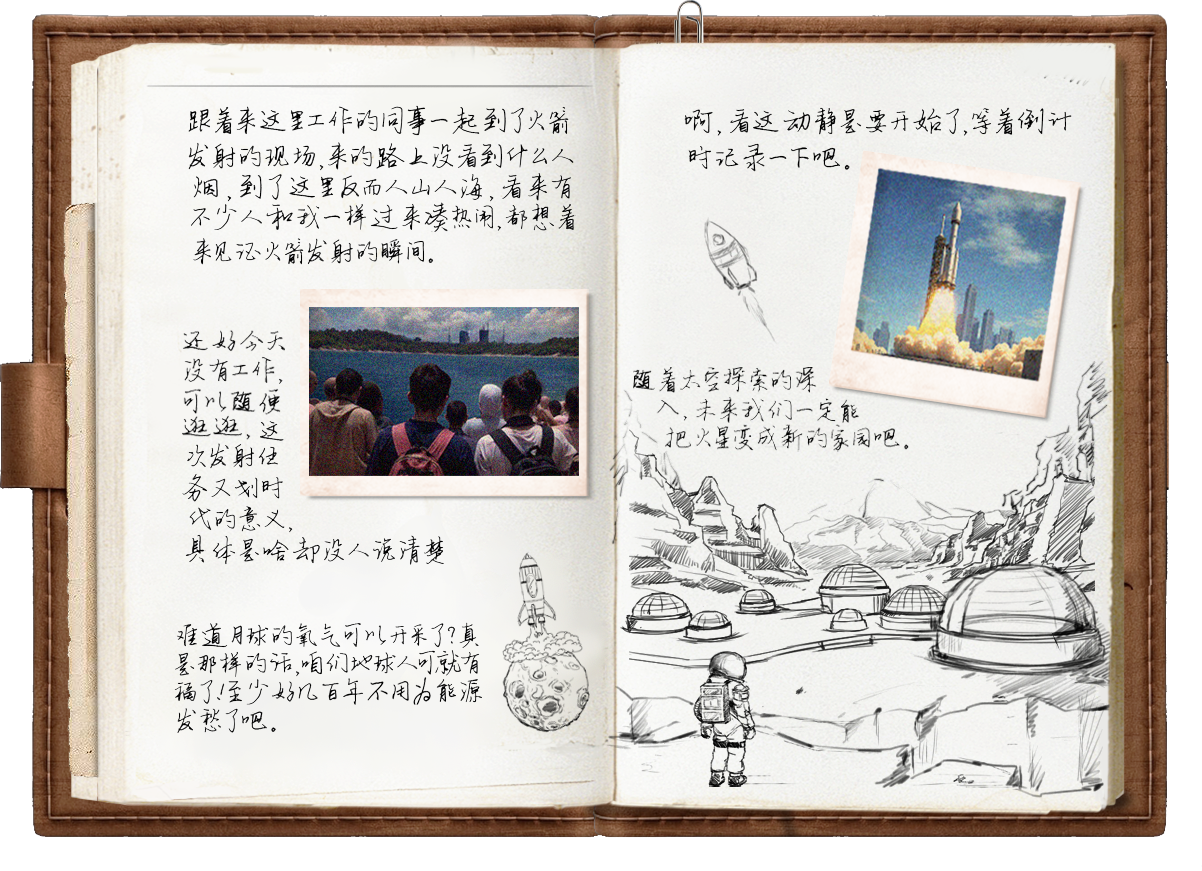 跟着来这里工作的同事一起到了火箭
发射的现场,来的路上没看到什么人
烟,到了这里反而人山人海,看来有
不少人和我一样过来凑热闹,都想着
来见证火箭发射的瞬间。
还好今天
没有工作,
可以随便
逛逛,这
次发射任
务又划时
代的意义,
具体是啥却没人说清楚
难道月球的氧气可以开采了?真
是那样的话,咱们地球人可就有
福了!至少好几百年不用为能源
发愁了吧。
啊,看这动静是要开始了,等着倒计
时记录一下吧。
随着太空探索的深
入,未来我们一定能
把火星变成新的家园吧。